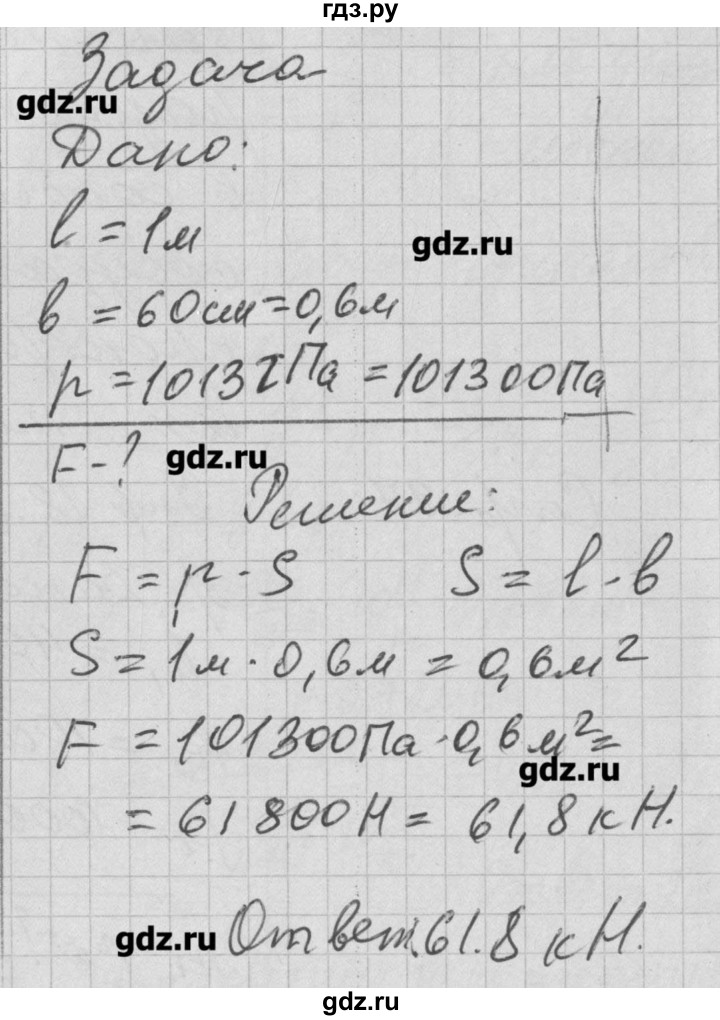 гдз.ру
Задача
gdz.ru
Дано:
l = 1м
gdz.ru
b = 60см = 0,6м
p = 1013гПа = 101300Па
F - ?
gdz.ru
Решение:
F = p · S     S = l · b
S = 1м · 0,6м = 0,6м²
F = 101300Па · 0,6м² =
gdz.ru
= 61800Н = 61,8кН.
gdz.ru
Ответ. 61.8 кН.
gdz.ru